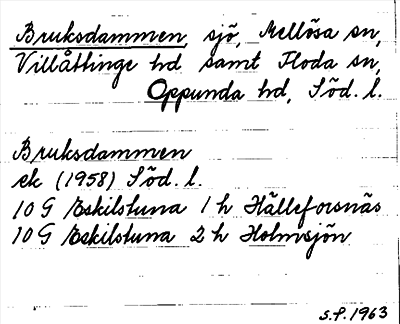 Bruksdammen, sjö, Mellösa sn,
Villåttinge hd samt Floda sn,
Oppunda hd, Söd. l.
Bruksdammen
ek (1958) Söd. l.
10 G Eskilstuna 1 h Hälleforsnäs
10 G Eskilstuna 2 h Holmsjön
S.P. 1963